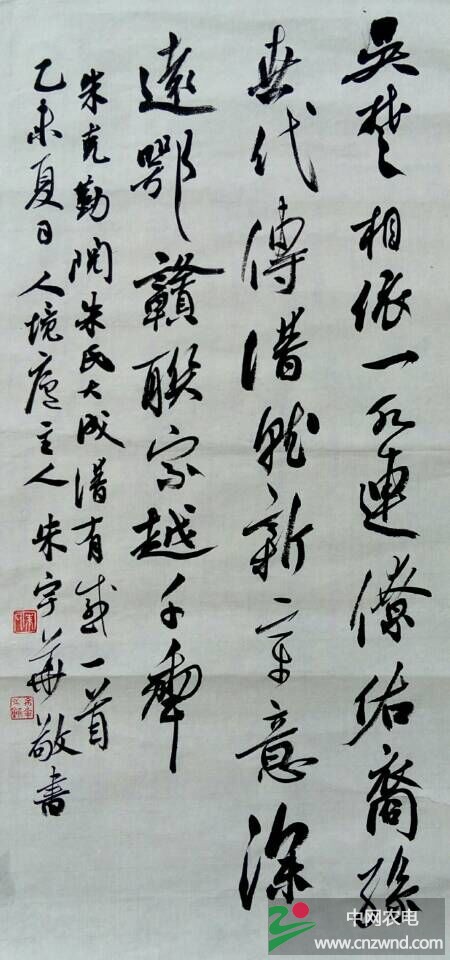 吴楚相依一水连僚佑裔孙
世代传谱就新章意深
遠鄂赣联宗越千年
朱克勤阅朱氏大成谱有感一首
乙未夏日人境廬主人朱宇華敬書
中网农电
www.cnzwnd.com